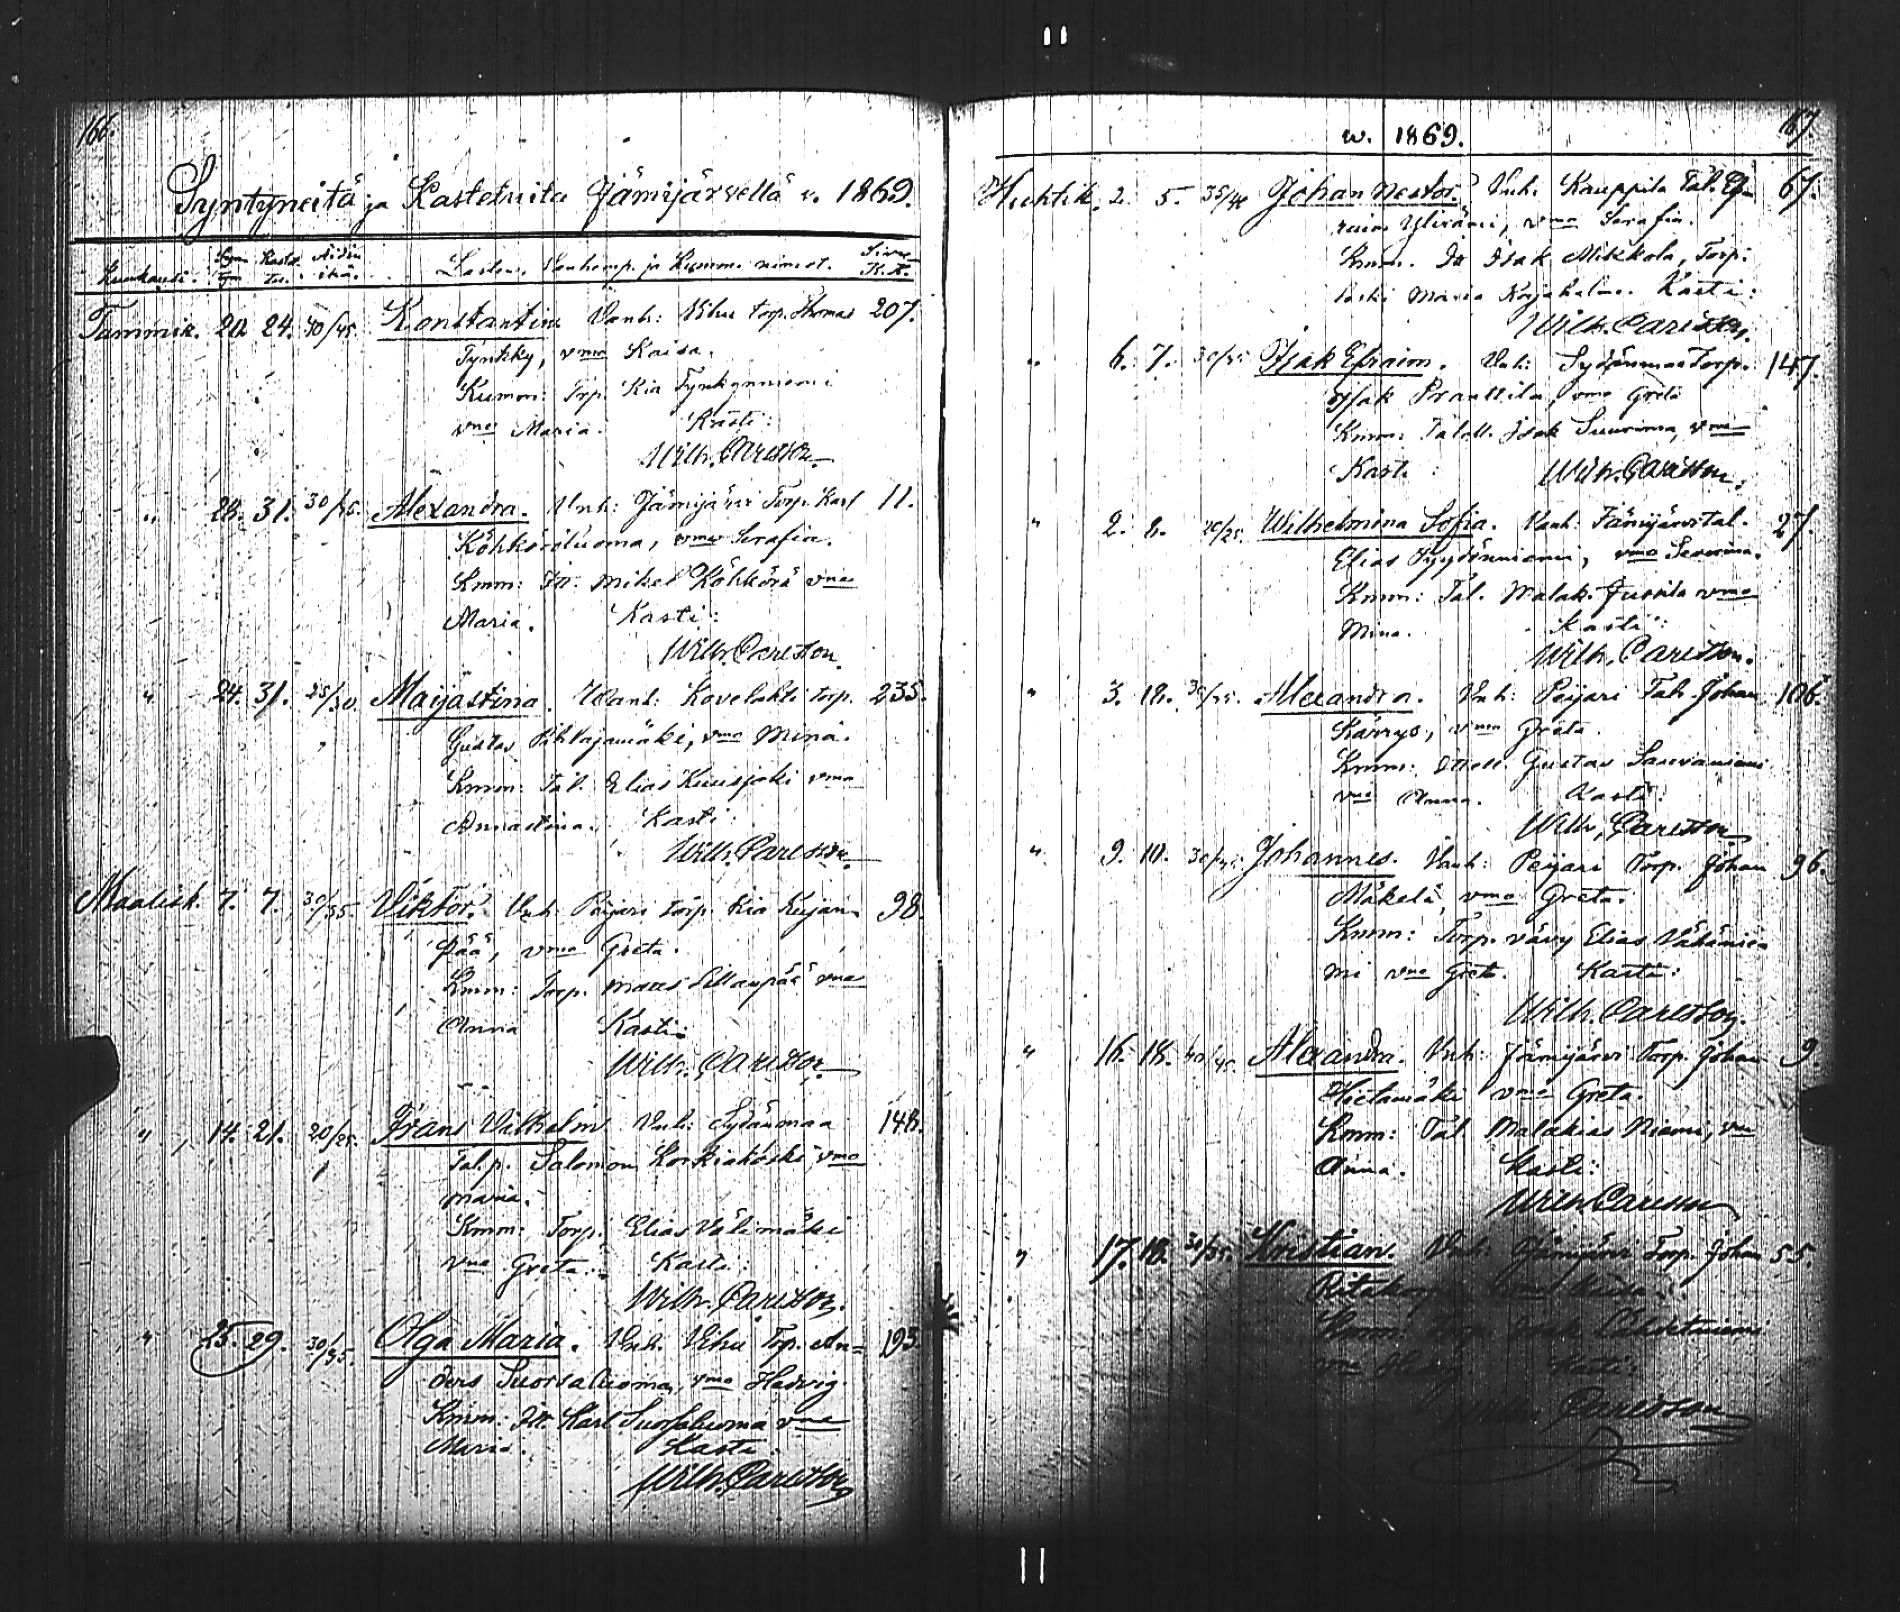 166.
Syntyneitä ja Kastetuita Jämijärvellä v. 1869.
Kuukausi. Syn Kastet Äidin ikä. Lasten, Vanhemp. ja Kumm. nimet. Sivu K.K.
Tammik. 20 24. 40/45. Konstantin Vanh: Vihu torp. Thomas 207.
Tynkky, vmo Kaisa.
Kumm: Torp. Kia Tynkynniemi
vmo Maria. Kasti:
Wilh. Carlsson.
" 28. 31. 30/35. Alexandra. Vnh: Jämijärvi Torp. Karl 11.
Köhköröluoma, vmo Serafia.
Kmm: Itt. Mikel Köhkörä vmo
Maria. Kasti:
Wilh. Carlsson.
" 24. 31. 25/30 Maijastina. Wanh: Kovelahti torp. 235.
Gustav Pihlajamäki, vmo Mina.
Kmm: Tal. Elias Kuusjoki vmo
Annastina. Kasti:
Wilh. Carlsson.
Maalisk. 7. 7. 30/35. Viktor. Vnh: Peijari torp. Kia Kujan 98.
pää, vmo Greta.
Kmm: Torp. Matts Sillanpää vmo
Anna Kasti:
Wilh. Carlsson.
" 14. 21. 20/25. Frans Vilhelm Vnh: Sydänmaa 148.
Tal.p. Salomon Korkiakoski vmo
Maria.
Kmm: Torp. Elias Välimäki
vmo Greta. Kasti:
Wilh. Carlsson.
" 25. 29. 30/35. Olga Maria. Vnh. Vihu Torp. An= 193
ders Suorsaluoma, vmo Hedvig.
Kmm: Itt. Karl Suorsaluoma vmo
Maria. Kasti:
Wilh. Carlsson
w. 1869.
167.
Huhtik. 2. 5. 35/40 Johan Nestor. Vnh. Kauppila Tal. Ef- 67.
raim Yliviini, vmo Serafia.
Kmm. Itt Isak Mikkola, Torp:
leski Maria Kasti:
Wilh. Carlsson.
" 6. 7. 30/35 Isak Efraim. Vnh: Sydänmaa Torp. 147.
Isak Pranttila, vmo Greta
Kmm: Talell. Isak Suurima, vmo
Kasti: Wilh. Carlsson.
" 2. 8. 20/25. Wilhelmina Sofia. Vanh: Jämijärvi tal. 27.
Elias Pyydönniemi, vmo Severina.
Kmm: Tal. Malak. Jussila vmo
Mina. Kasti:
Wilh. Carlsson.
" 3. 18. 30/35. Alexandra. Vnh: Peijari Tal. Johan 106.
Kärrys, vmo Greta.
Kmm: Ittell. Gustav Sauvaniemi
vmo Anna. Kasti:
Wilh. Carlsson
" 9. 10. Johannes. Vanh: Peijari Torp. Johan 96.
Mäkelä, vmo Greta.
Kmm: Torp. vävy Elias Vähänie
mi vmo Greta. Kasti:
Wilh. Carlsson.
" 16. 18. 40/45. Alexandra. Vnh: Jämijärvi Torp. Johan 9
Hietamäki vmo Greta.
Kmm: Tal Malakias Niemi, vmo
Anna. Kasti:
Wilh Carlsson
" 17. 18. 30/35. Kristian. Vnh: Jämijärvi Torp. Johan 55.
Kmm:
vmo Kasti:
Carlsson